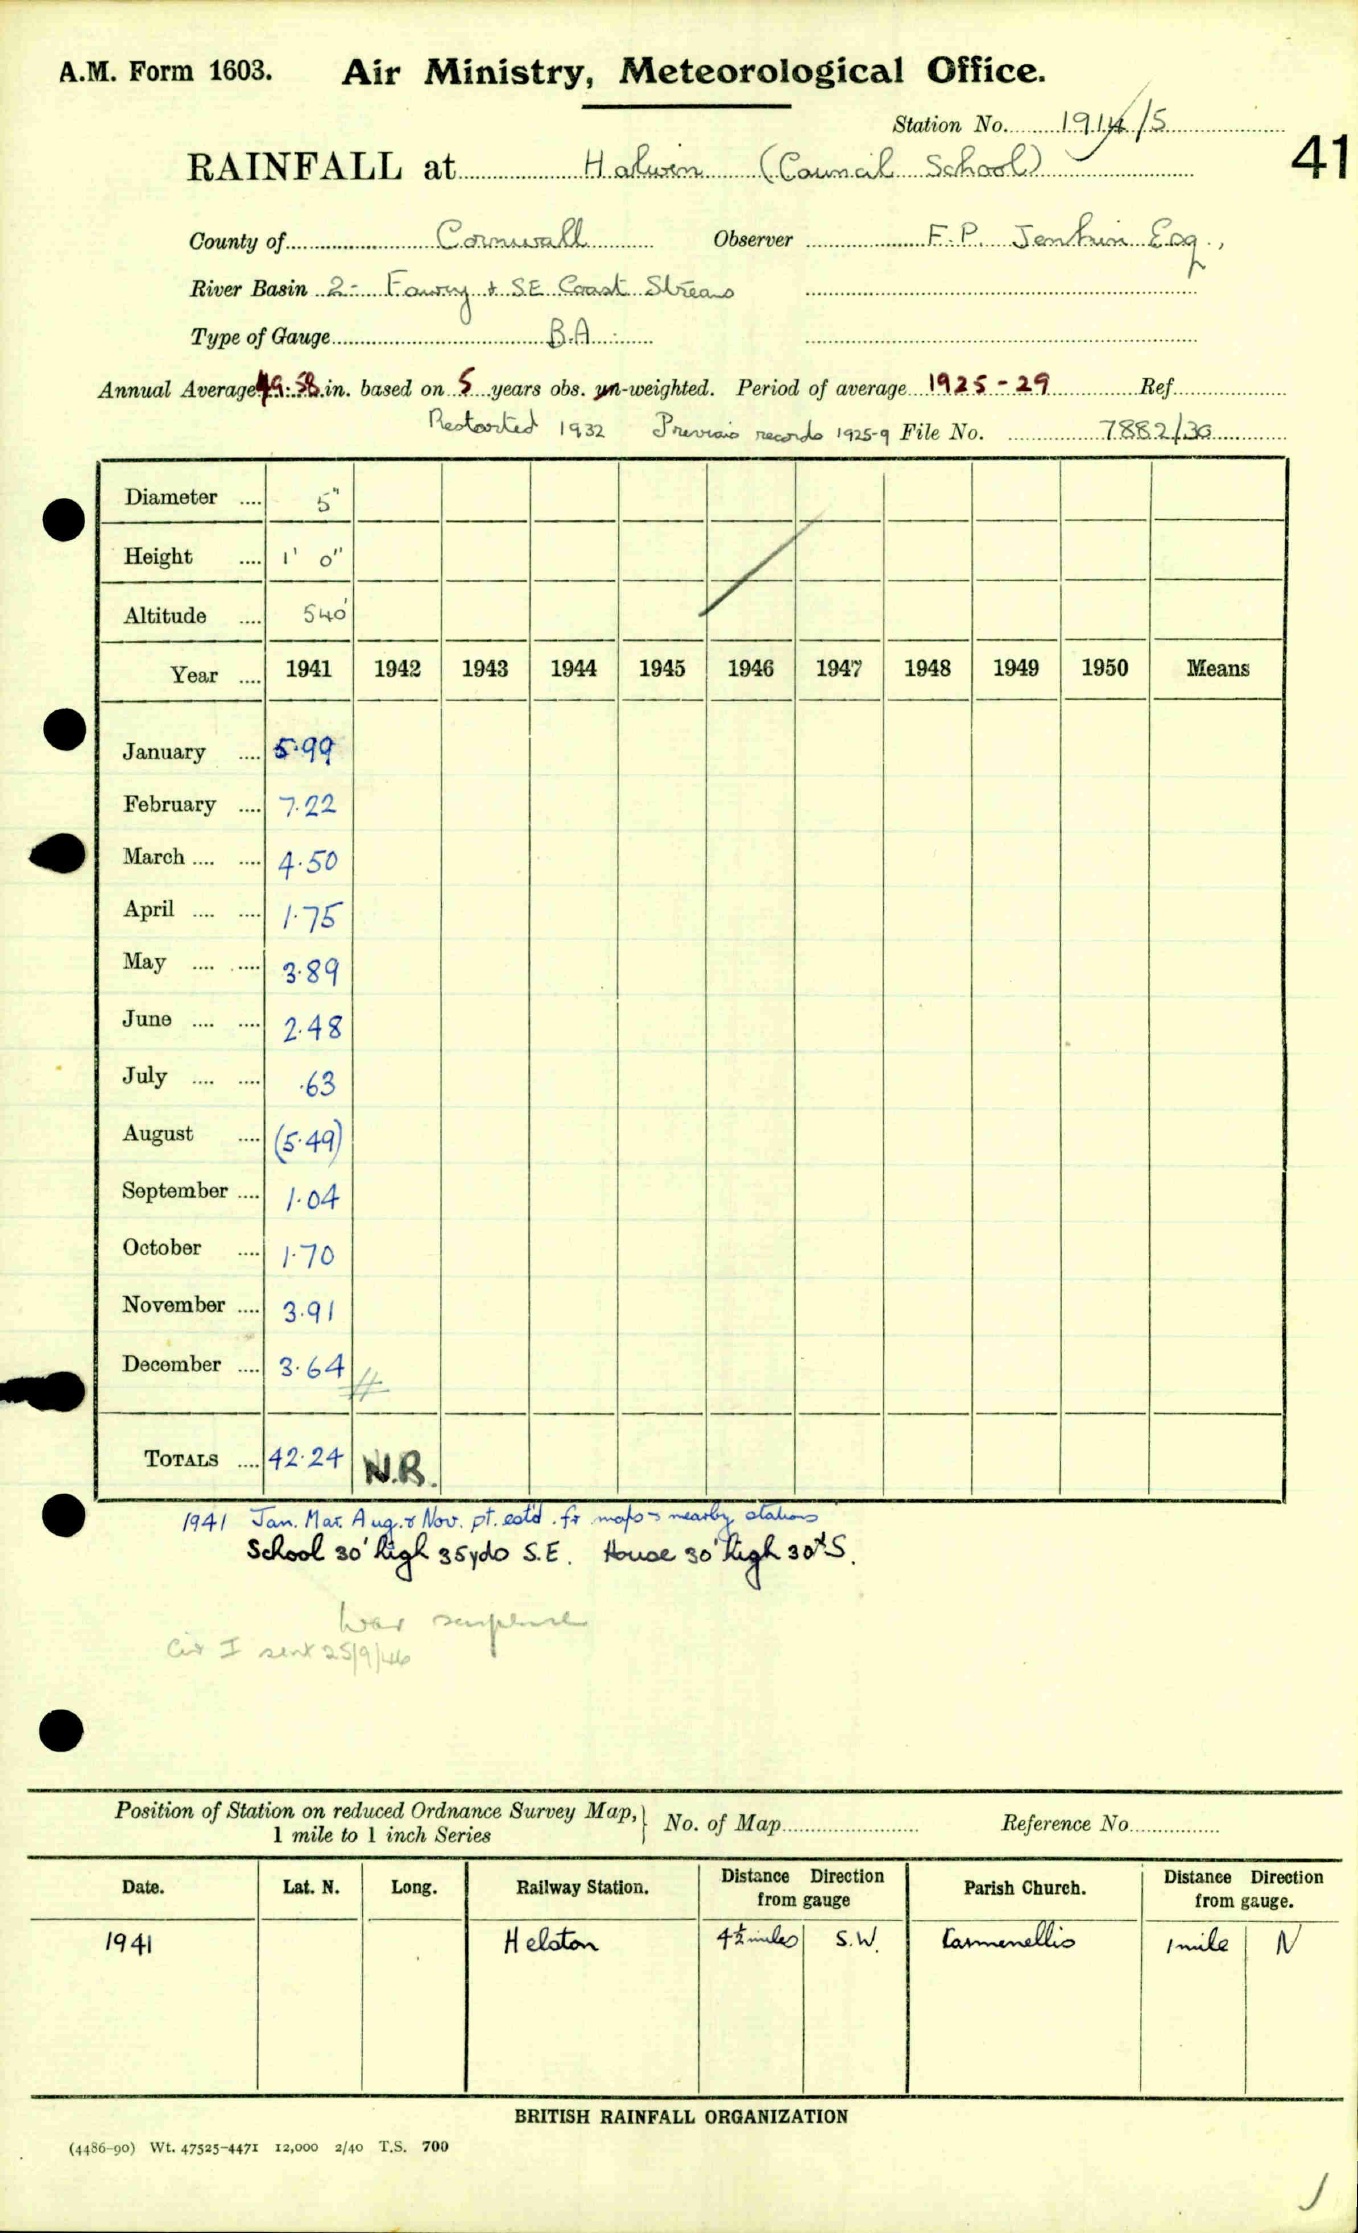 A.M. Form 1603. Air Ministry, Meteorological Office.
Station No. 1914/5
41
RAINFALL at Halwin (Council School)
County of Cornwall Observer F.P. Jenkin Esq.,
River Basin 2- Fowey & SE Coast Streams
Type of Gauge B.A.
Annual Average 49.58 in. based on 5 years obs. un-weighted. Period of average 1925-29 Ref
Restarted 1932 Previous records 1925-9 File No. 7882/30
Diameter .... 5"
Height .... 1' 0"
Altitude .... 540'
Year .... 1941 1942 1943 1944 1945 1946 1947 1948 1949 1950 Means
January .... 5.99
February .... 7.22
March .... .... 4.50
April .... .... 1.75
May .... .... 3.89
June .... .... 2.48
July .... .... .63
August .... (5.49)
September .... 1.04
October .... 1.70
November .... 3.91
December .... 3.64
TOTALS .... 42.24 N.R.
1941 Jan. Mar. Aug. & Nov. pt. est'd. fr maps & nearby stations
School 30' high 35 yds S.E. House 30' high 30x S.
War
Cir I sent 25/9/46
Position of Station on reduced Ordnance Survey Map, 1 mile to 1 inch Series } No. of Map Reference No
Date. Lat. N. Long. Railway Station. Distance Direction from gauge Parish Church. Distance Direction from gauge.
1941 Helston 4½ miles S.W. Carmenellis 1 mile N
BRITISH RAINFALL ORGANIZATION
(4486-90) Wt. 47525-4471 12,000 2/40 T.S. 700